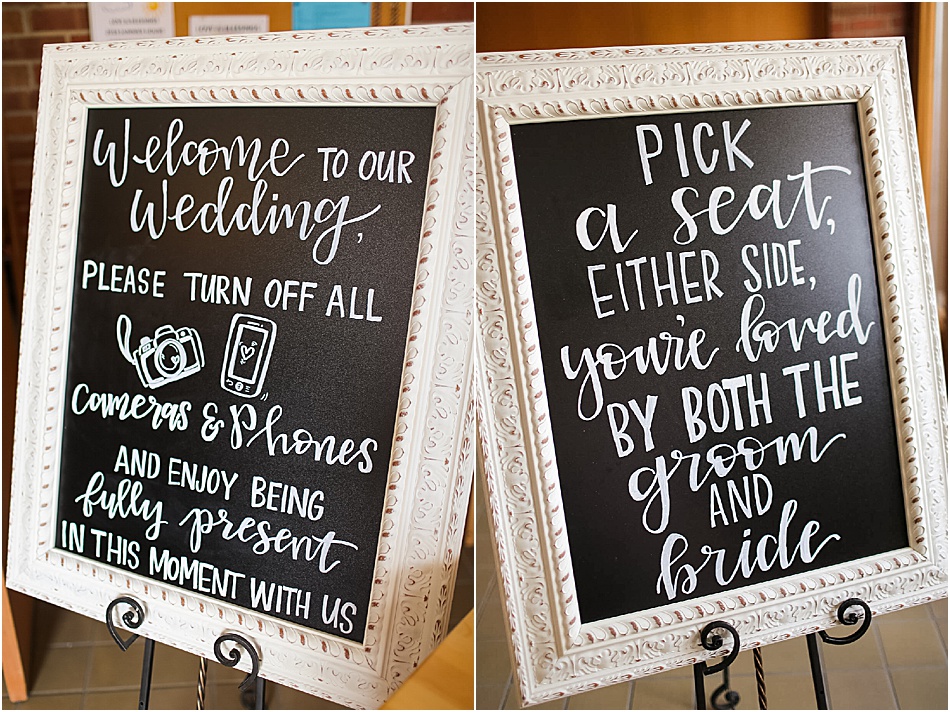 Welcome TO OUR
Wedding,
PLEASE TURN OFF ALL
Cameras & Phones
AND ENJOY BEING
fully present
IN THIS MOMENT WITH US
PICK
a seat,
EITHER SIDE,
you're loved
BY BOTH THE
groom
AND
bride